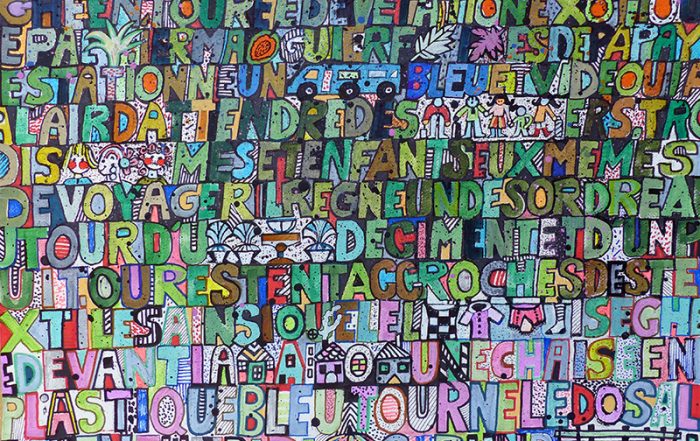 CHEENTOUREDEVEGETATIONEXO
EPA VERMA GUIERF ESDEPAPAY
ESTATIONNEUN BLEUETVIDEOUV
ALAIRDATTENDREDES ERSTRO
OIS MESETENFANTSEUXMEMES
DEVOYAGERILREGNEUNDESORDREA
UTOURDU DECIMENTETDUNP
UITOURESTENTACCROCHESDESTE
XTILESAINSIQUE SEGH
EDEVANTLA OUUNECHAISEEN
PLASTIQUEBLEUTOURNELEDOSAL